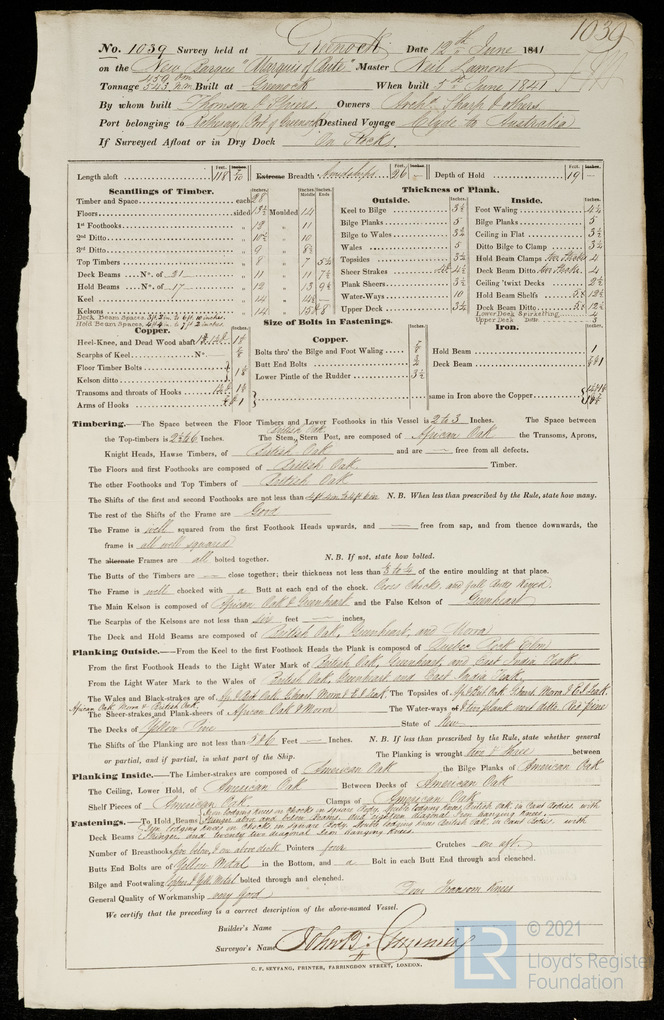 1039
No. 1039 Survey held at Greenock Date 12th June 1841
on the New Barque "Marquis of Bute" Master Neil Lamont
Tonnage 543 n.m. Built at Greenock When built 5th June 1841
By whom built Thomson & Spiers Owners Archd. Sharp & others
Port belonging to Rothesay, (Port of Greenock) Destined Voyage Clyde to Australia
If Surveyed Afloat or in Dry Dock On Stocks.
Length aloft 118 Extreme Breadth Amidships 26 Depth of Hold 19
Scantlings of Timber.
Timber and Space each 28
Floors sided 13½ Moulded 14
1st Foothooks 12 " 11
2nd Ditto 10½ " 10
3rd Ditto 9 " 8½
Top Timbers 8 " 7 5½
Deck Beams No. of 21 11 " 11 7½
Hold Beams No. of 17 12 " 13 9½
Keel 14
Kelsons 14
Thickness of Plank.
Outside.
Keel to Bilge 3½
Bilge Planks 5
Bilge to Wales 3½
Wales 5
Topsides 3½
Sheer Strakes 4½
Plank Sheers 3½
Water-Ways 10
Upper Deck 3½
Inside.
Foot Waling 4½
Bilge Planks 5
Ceiling in Flat 3½
Ditto Bilge to Clamp 3½
Hold Beam Clamps 4
Deck Beam Ditto 4
Ceiling 'twixt Decks 2½
Hold Beam Shelfs 12½
Deck Beam Ditto 12½
Lower Deck Spirketting 4
Upper Deck Ditto 3
Size of Bolts in Fastenings.
Copper.
Heel-Knee, and Dead Wood abaft
Scarphs of Keel No.
Floor Timber Bolts
Kelson ditto
Transoms and throats of Hooks
Arms of Hooks
Copper.
Bolts thro' the Bilge and Foot Waling
Butt End Bolts
Lower Pintle of the Rudder 3½
Iron.
Hold Beam 1
Deck Beam
same in Iron above the Copper
Timbering.—The Space between the Floor Timbers and Lower Foothooks in this Vessel is 2 to 3 Inches. The Space between
the Top-timbers is Inches. The Stem, Stern Post, are composed of British Oak African Oak the Transoms, Aprons,
Knight Heads, Hawse Timbers, of British Oak and are — free from all defects.
The Floors and first Foothooks are composed of British Oak Timber.
The other Foothooks and Top Timbers of British Oak
The Shifts of the first and second Foothooks are not less than N. B. When less than prescribed by the Rule, state how many.
The rest of the Shifts of the Frame are Good
The Frame is well squared from the first Foothook Heads upwards, and — free from sap, and from thence downwards, the
frame is all well squared
The alternate Frames are all bolted together. N. B. If not, state how bolted.
The Butts of the Timbers are — close together; their thickness not less than ⅓ to ¼ of the entire moulding at that place.
The Frame is well chocked with a Butt at each end of the chock.
The Main Kelson is composed of African Oak & Greenheart and the False Kelson of Greenheart
The Scarphs of the Kelsons are not less than six feet — inches,
The Deck and Hold Beams are composed of British Oak, Greenheart, and Morra
Planking Outside.—From the Keel to the first Foothook Heads the Plank is composed of Quebec Rock Elm
From the first Foothook Heads to the Light Water Mark of British Oak, Greenheart, and East India Teak.
From the Light Water Mark to the Wales of British Oak, Greenheart and East India Teak.
The Wales and Black-strakes are of The Topsides of
African Oak, Morra & British Oak.
The Sheer-strakes and Plank-sheers of African Oak & Morra The Water-ways of
The Decks of Yellow Pine State of New.
The Shifts of the Planking are not less than 5 & 6 Feet — Inches. N. B. If less than prescribed by the Rule, state whether general
or partial, and if partial, in what part of the Ship. The Planking is wrought two & three between
Planking Inside.—The Limber-strakes are composed of American Oak the Bilge Planks of American Oak
The Ceiling, Lower Hold, of American Oak Between Decks of American Oak
Shelf Pieces of American Oak Clamps of American Oak
Fastenings.—To Hold Beams
Deck Beams
Number of Breasthooks two below, 1 on above deck Pointers four Crutches one aft.
Butts End Bolts are of Yellow Metal in the Bottom, and a Bolt in each Butt End through and clenched.
Bilge and Footwaling Copper & Yell. Metal bolted through and clenched.
General Quality of Workmanship very Good Iron Transom Knees
We certify that the preceding is a correct description of the above-named Vessel.
Builder's Name
Surveyor's Name
C. F. SEYFANG, PRINTER, FARRINGDON STREET, LONDON.
LR
© 2021
Lloyd's Register
Foundation